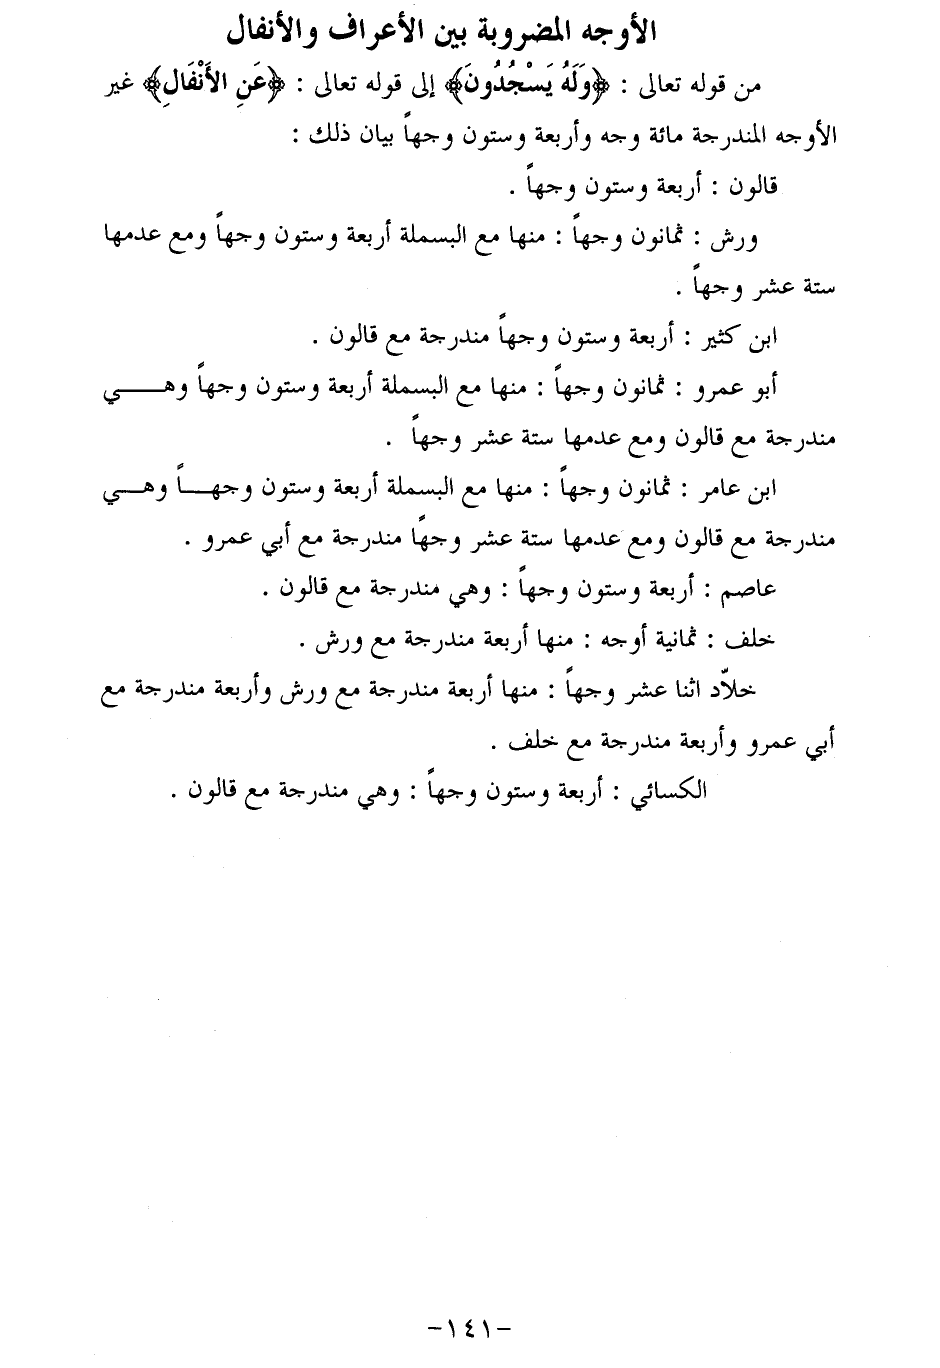 الأوجه المضروبة بين الأعراف والأنفال
من قوله تعالى : ﴿وَلَهُ يَسْجُدُونَ﴾ إلى قوله تعالى : ﴿عَنِ الأَنْفَالِ﴾ غير
الأوجه المندرجة مائة وجه وأربعة وستون وجهاً بيان ذلك :
قالون : أربعة وستون وجهاً .
ورش : ثمانون وجهاً : منها مع البسملة أربعة وستون وجهاً ومع عدمها
ستة عشر وجهاً .
ابن كثير : أربعة وستون وجهاً مندرجة مع قالون .
أبو عمرو : ثمانون وجهاً : منها مع البسملة أربعة وستون وجهاً وهـــي
مندرجة مع قالون ومع عدمها ستة عشر وجهاً .
ابن عامر : ثمانون وجهاً : منها مع البسملة أربعة وستون وجهـــاً وهـــي
مندرجة مع قالون ومع عدمها ستة عشر وجهاً مندرجة مع أبي عمرو .
عاصم : أربعة وستون وجهاً : وهي مندرجة مع قالون .
خلف : ثمانية أوجه : منها أربعة مندرجة مع ورش .
خلاّد اثنا عشر وجهاً : منها أربعة مندرجة مع ورش وأربعة مندرجة مع
أبي عمرو وأربعة مندرجة مع خلف .
الكسائي : أربعة وستون وجهاً : وهي مندرجة مع قالون .
-١٤١-